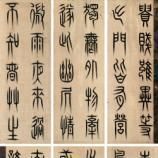 貴賤雖異等
出門皆有營
獨無外物牽
遂此幽居情
微雨夜來過
不知春草生